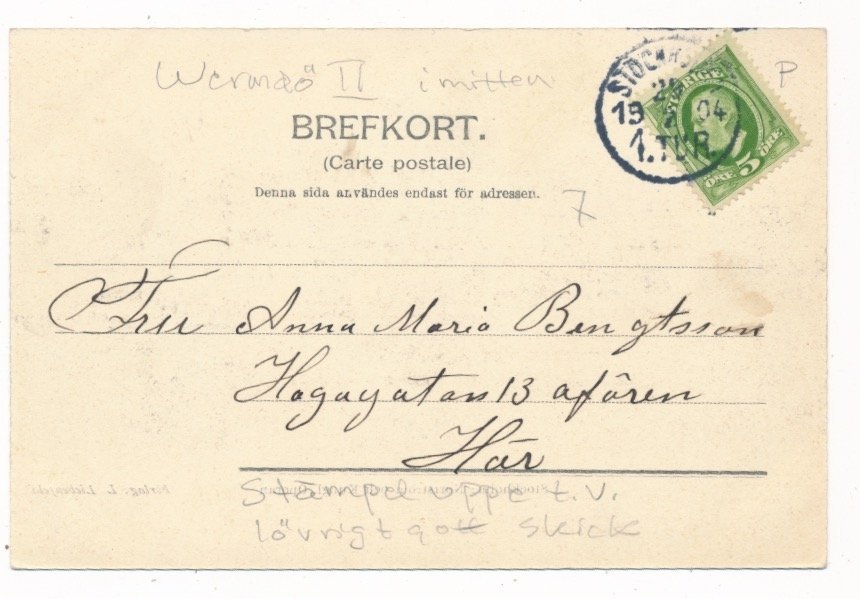 Wermdö II i mitten
P
STOCKHOLM
19 04
1.TUR.
SVERIGE
5
ÖRE ÖRE
BREFKORT.
(Carte postale)
Denna sida användes endast för adressen.
7
Fru Anna Maria Bengtsson
Hagagatan 13 afören
Här
Stämpel uppe t.v.
iövrigt gott skick